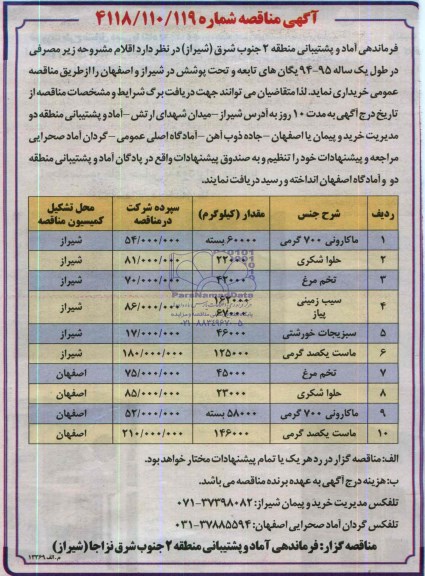 آگهی مناقصه شماره ۴۱۱۸/۱۱۰/۱۱۹
فرماندهی آماد و پشتیبانی منطقه ۲ جنوب شرق (شیراز) در نظر دارد اقلام مشروحه زیر مصرفی
در طول یک ساله ۹۵-۹۴ یگان های تابعه و تحت پوشش در شیراز و اصفهان را ازطریق مناقصه
عمومی خریداری نماید. لذا متقاضیان می توانند جهت دریافت برگ شرایط و مشخصات مناقصه از
تاریخ درج آگهی به مدت ۱۰ روز به آدرس شیراز -میدان شهدای ارتش -آماد و پشتیبانی منطقه دو
مدیریت خرید و پیمان یا اصفهان -جاده ذوب آهن -آمادگاه اصلی عمومی -گردان آماد صحرایی
مراجعه و پیشنهادات خود را تنظیم و به صندوق پیشنهادات واقع در پادگان آماد و پشتیبانی منطقه
دو و آمادگاه اصفهان انداخته و رسید دریافت نمایند.
ردیف شرح جنس مقدار (کیلوگرم) سپرده شرکت درمناقصه محل تشکیل کمیسیون مناقصه
۱ ماکارونی ۷۰۰ گرمی ۶۰۰۰۰ بسته ۵۴/۰۰۰/۰۰۰ شیراز
۲ حلوا شکری ۲۲۰۰۰ ۸۱/۰۰۰/۰۰۰ شیراز
۳ تخم مرغ ۴۲۰۰۰ ۷۰/۰۰۰/۰۰۰ شیراز
۴ سیب زمینی پیاز ۱۶۲۰۰۰ ۶۷۰۰۰ ۸۶/۰۰۰/۰۰۰ شیراز
۵ سبزیجات خورشتی ۴۶۰۰۰ ۱۷/۰۰۰/۰۰۰ شیراز
۶ ماست یکصد گرمی ۱۲۵۰۰۰ ۱۸۰/۰۰۰/۰۰۰ شیراز
۷ تخم مرغ ۴۵۰۰۰ ۷۵/۰۰۰/۰۰۰ اصفهان
۸ حلوا شکری ۲۳۰۰۰ ۸۵/۰۰۰/۰۰۰ اصفهان
۹ ماکارونی ۷۰۰ گرمی ۵۸۰۰۰ بسته ۵۲/۰۰۰/۰۰۰ اصفهان
۱۰ ماست یکصد گرمی ۱۴۶۰۰۰ ۲۱۰/۰۰۰/۰۰۰ اصفهان
ParsNamadData
۰۲۱-۸۸۳۴۹۶۷۰-۵
الف: مناقصه گزار در رد هر یک یا تمام پیشنهادات مختار خواهد بود.
ب: هزینه درج آگهی به عهده برنده مناقصه می باشد.
تلفکس مدیریت خرید و پیمان شیراز: ۳۷۳۹۸۰۸۲-۰۷۱
تلفکس گردان آماد صحرایی اصفهان: ۳۷۸۸۵۵۹۴-۰۳۱
مناقصه گزار: فرماندهی آماد و پشتیبانی منطقه ۲ جنوب شرق نزاجا (شیراز)
م.الف ۱۳۲۶۹